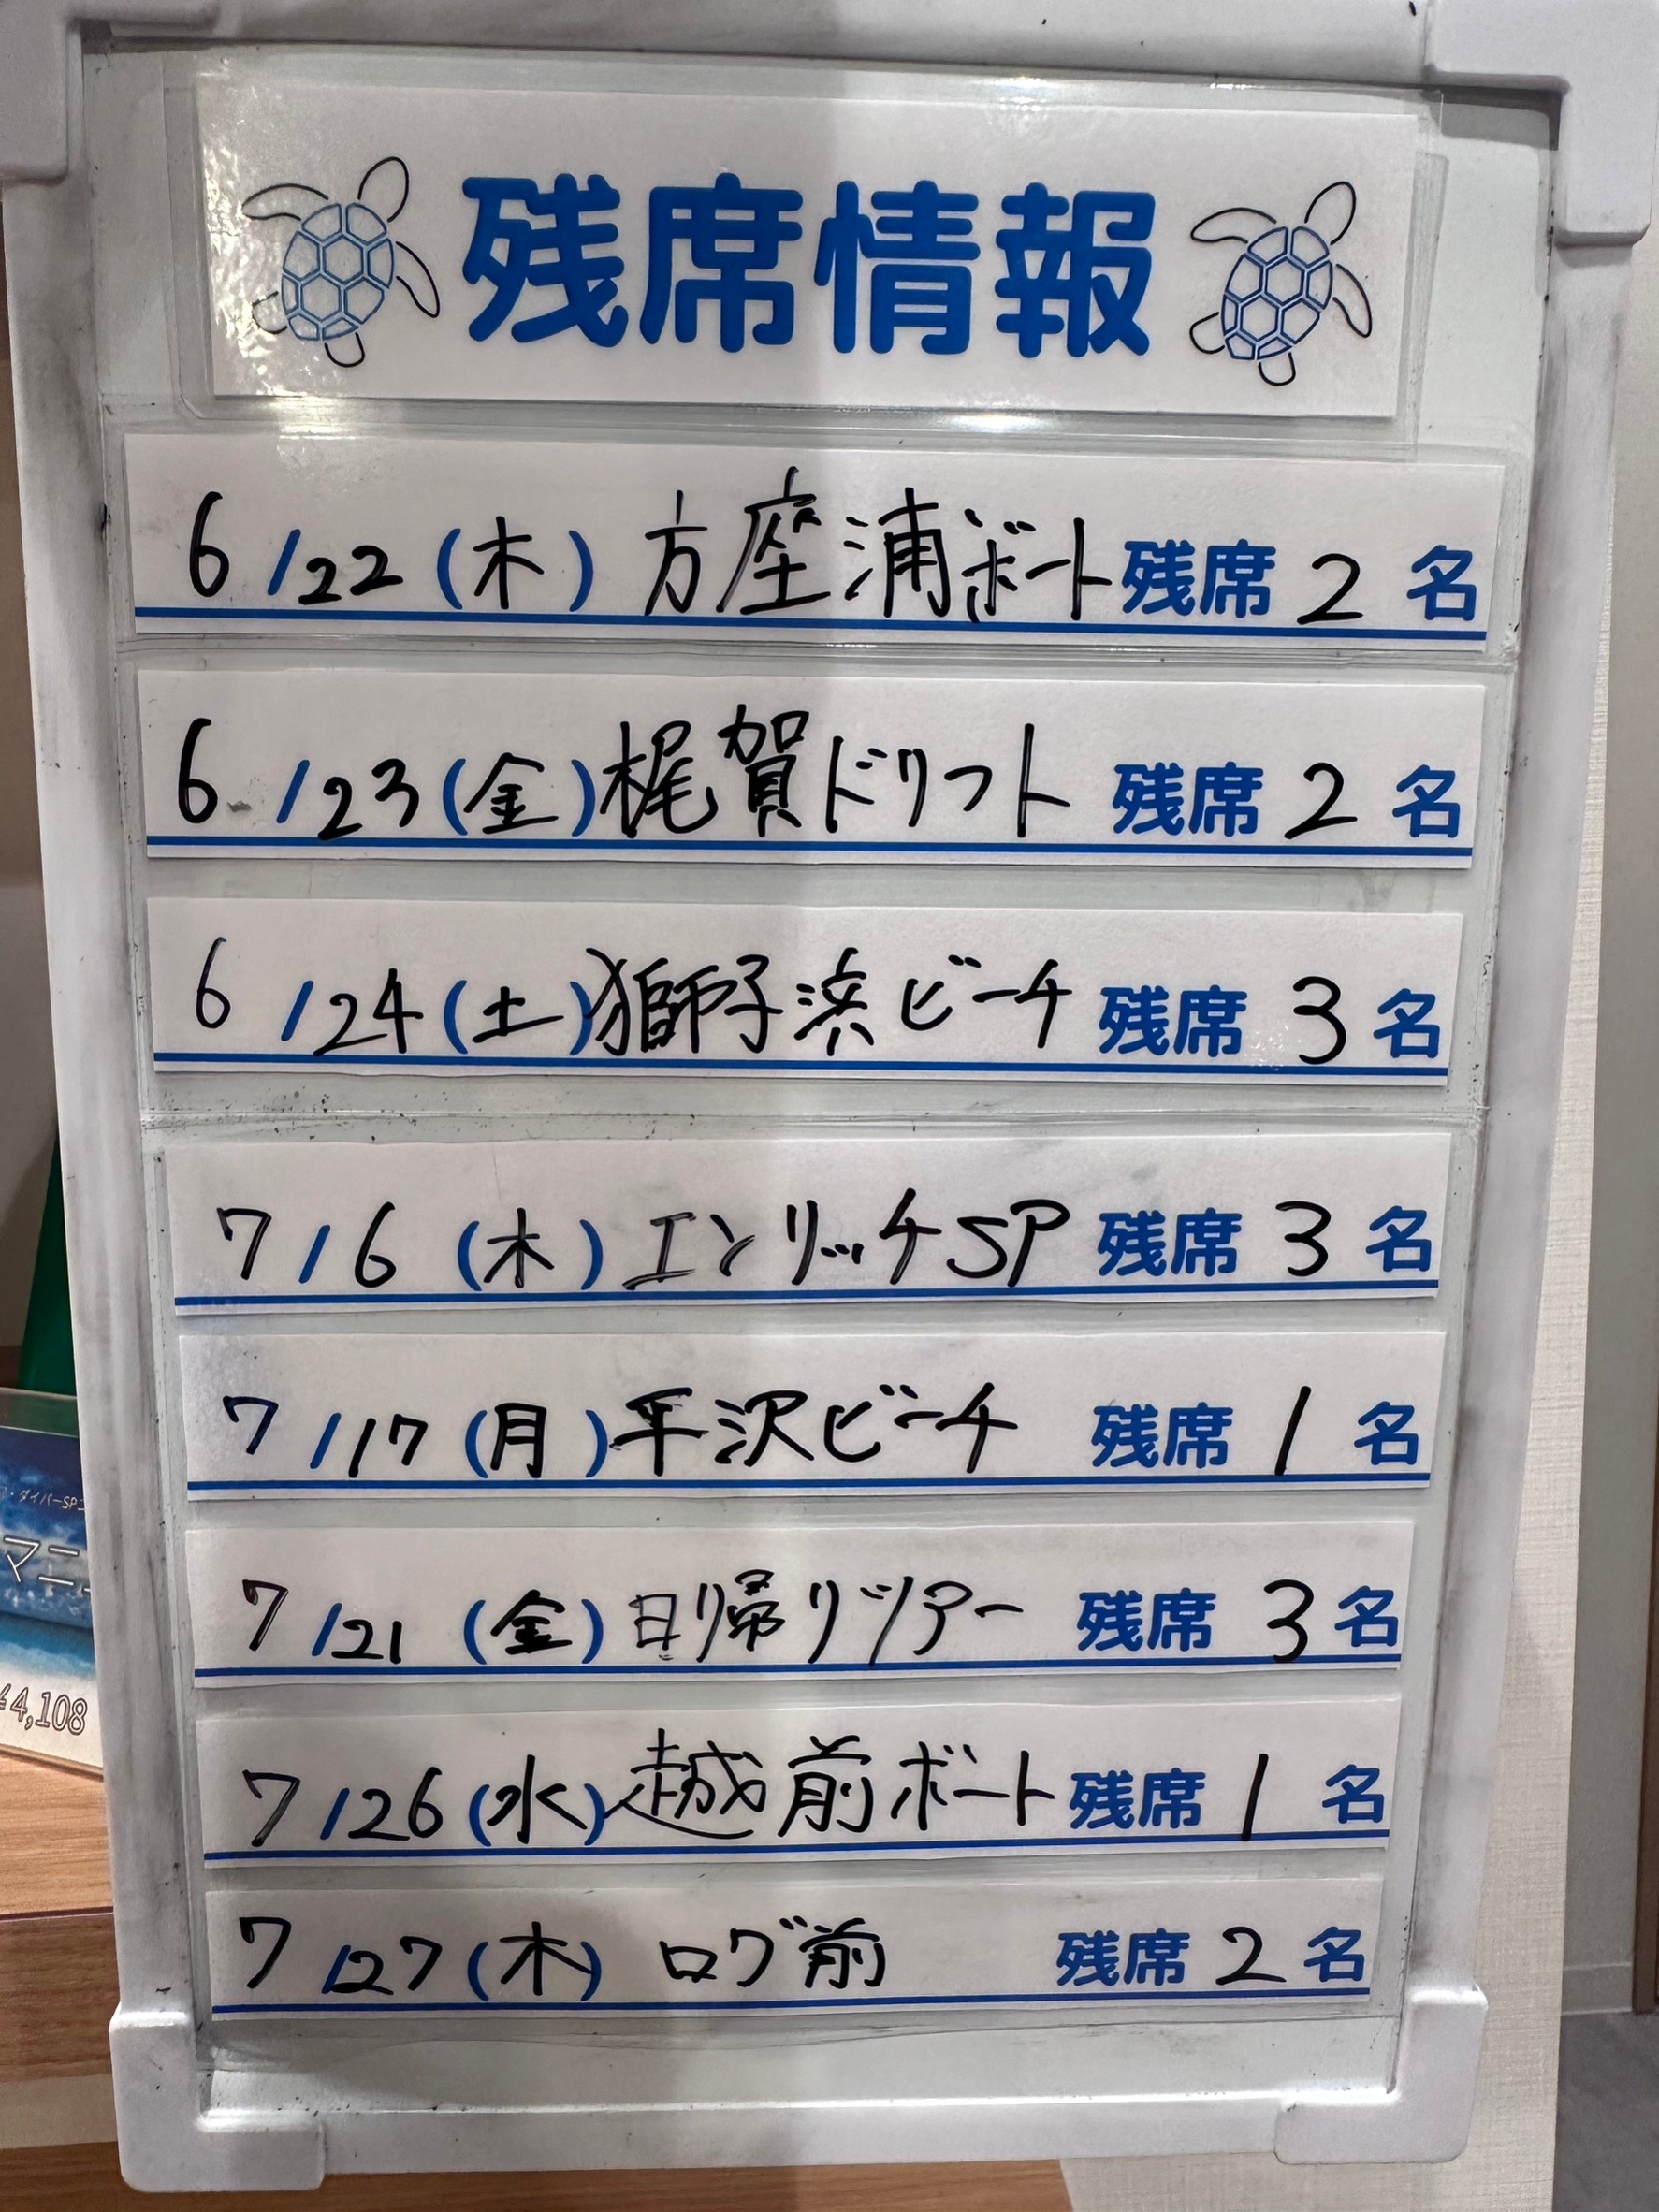 残席情報
6/22(木)方座浦ボート残席2名
6/23(金)梶賀ドリフト 残席2名
6/24(土)獅子浜ビーチ 残席3名
7/6(木)エンリッチSP 残席3名
7/17(月)平沢ビーチ 残席1名
7/21(金)日帰りツアー 残席3名
7/26(水)越前ボート残席1名
7/27(木)ログ前 残席2名
ダイバーSP
マニ
¥4,108